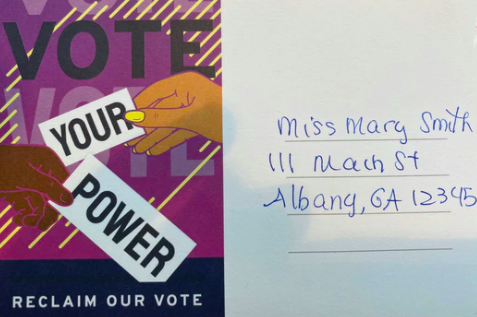 VOTE
VOTE
VOTE
YOUR
POWER
RECLAIM OUR VOTE
Miss Mary Smith
111 Mach St
Albang, GA 12345